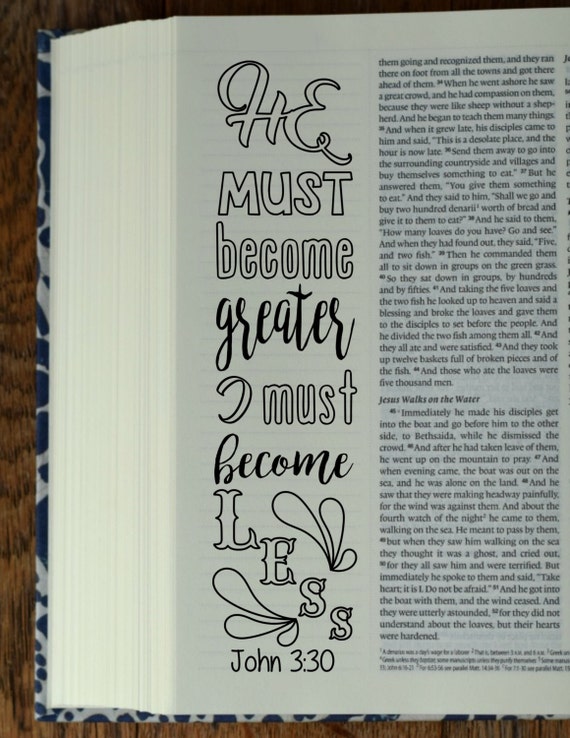 HE
MUST
become
greater
I must
become
LESS
John 3:30
them going and recognized them, and they ran
there on foot from all the towns and got there
ahead of them. 34 When he went ashore he saw
a great crowd, and he had compassion on them,
because they were like sheep without a shep-
herd. And he began to teach them many things.
35 And when it grew late, his disciples came to
him and said, "This is a desolate place, and the
hour is now late. 36 Send them away to go into
the surrounding countryside and villages and
buy themselves something to eat." 37 But he
answered them, "You give them something
to eat." And they said to him, "Shall we go and
buy two hundred denarii¹ worth of bread and
give it to them to eat?" 38 And he said to them,
"How many loaves do you have? Go and see."
And when they had found out, they said, "Five,
and two fish." 39 Then he commanded them
all to sit down in groups on the green grass.
40 So they sat down in groups, by hundreds
and by fifties. 41 And taking the five loaves and
the two fish he looked up to heaven and said a
blessing and broke the loaves and gave them
to the disciples to set before the people. And
he divided the two fish among them all. 42 And
they all ate and were satisfied. 43 And they took
up twelve baskets full of broken pieces and of
the fish. 44 And those who ate the loaves were
five thousand men.
Jesus Walks on the Water
45 Immediately he made his disciples get
into the boat and go before him to the other
side, to Bethsaida, while he dismissed the
crowd. 46 And after he had taken leave of them,
he went up on the mountain to pray. 47 And
when evening came, the boat was out on the
sea, and he was alone on the land. 48 And he
saw that they were making headway painfully,
for the wind was against them. And about the
fourth watch of the night² he came to them,
walking on the sea. He meant to pass by them,
49 but when they saw him walking on the sea
they thought it was a ghost, and cried out,
50 for they all saw him and were terrified. But
immediately he spoke to them and said, "Take
heart; it is I. Do not be afraid." 51 And he got into
the boat with them, and the wind ceased. And
they were utterly astounded, 52 for they did not
understand about the loaves, but their hearts
were hardened.
¹ A denarius was a day's wage for a laborer ² That is, between 3 A.M. and 6 A.M.